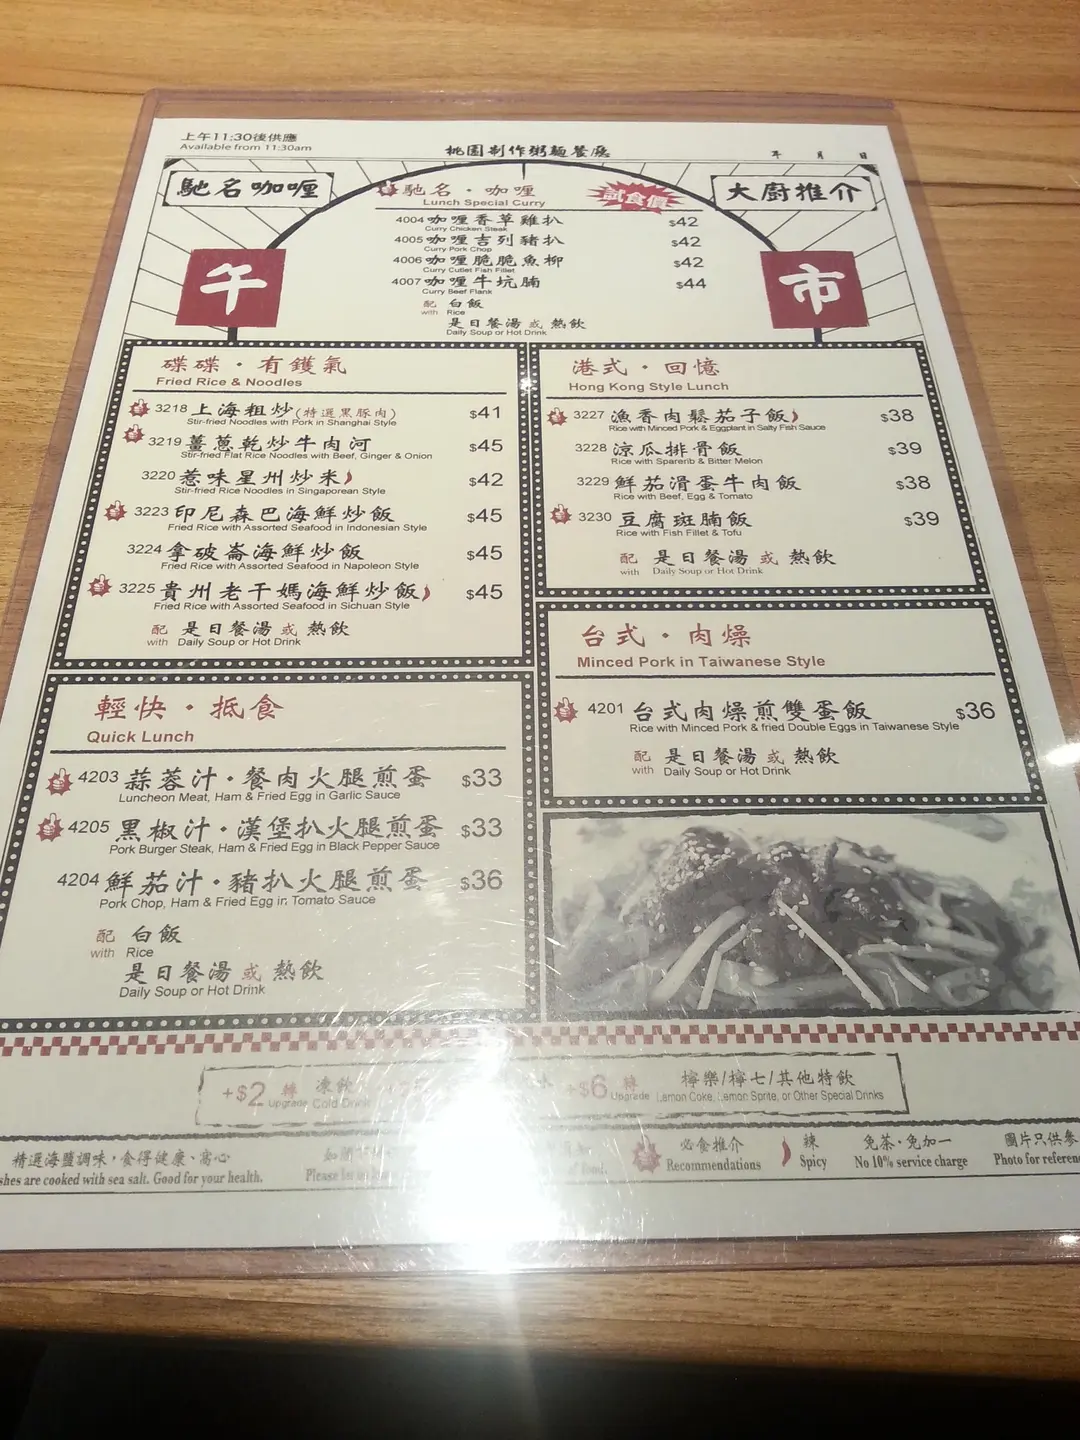 上午11:30後供應
Available from 11:30am
桃園制作粥麵餐廳
年 月 日
馳名咖喱
馳名·咖喱
Lunch Special Curry
試食價
大廚推介
午
市
4004 咖喱香草雞扒 $42
Curry Chicken Steak
4005 咖喱吉列豬扒 $42
Curry Pork Chop
4006 咖喱脆脆魚柳 $42
Curry Cutlet Fish Fillet
4007 咖喱牛坑腩 $44
Curry Beef Flank
配 白飯
with Rice
是日餐湯或熱飲
Daily Soup or Hot Drink
碟碟·有鑊氣
Fried Rice & Noodles
3218 上海粗炒(特選黑豚肉) $41
Stir-fried Noodles with Pork in Shanghai Style
3219 薑蔥乾炒牛肉河 $45
Stir-fried Flat Rice Noodles with Beef, Ginger & Onion
3220 惹味星州炒米 $42
Stir-fried Rice Noodles in Singaporean Style
3223 印尼森巴海鮮炒飯 $45
Fried Rice with Assorted Seafood in Indonesian Style
3224 拿破崙海鮮炒飯 $45
Fried Rice with Assorted Seafood in Napoleon Style
3225 貴州老干媽海鮮炒飯 $45
Fried Rice with Assorted Seafood in Sichuan Style
配 是日餐湯或熱飲
with Daily Soup or Hot Drink
港式·回憶
Hong Kong Style Lunch
3227 漁香肉鬆茄子飯 $38
Rice with Minced Pork & Eggplant in Salty Fish Sauce
3228 涼瓜排骨飯 $39
Rice with Sparerib & Bitter Melon
3229 鮮茄滑蛋牛肉飯 $38
Rice with Beef, Egg & Tomato
3230 豆腐斑腩飯 $39
Rice with Fish Fillet & Tofu
配 是日餐湯或熱飲
with Daily Soup or Hot Drink
台式·肉燥
Minced Pork in Taiwanese Style
4201 台式肉燥煎雙蛋飯 $36
Rice with Minced Pork & fried Double Eggs in Taiwanese Style
配 是日餐湯或熱飲
with Daily Soup or Hot Drink
輕快·抵食
Quick Lunch
4203 蒜蓉汁·餐肉火腿煎蛋 $33
Luncheon Meat, Ham & Fried Egg in Garlic Sauce
4205 黑椒汁·漢堡扒火腿煎蛋 $33
Pork Burger Steak, Ham & Fried Egg in Black Pepper Sauce
4204 鮮茄汁·豬扒火腿煎蛋 $36
Pork Chop, Ham & Fried Egg in Tomato Sauce
配 白飯
with Rice
是日餐湯或熱飲
Daily Soup or Hot Drink
+$2 轉 凍飲
Upgrade Cold Drink
+$6 轉 檸樂/檸七/其他特飲
Upgrade Lemon Coke, Lemon Sprite, or Other Special Drinks
精選海鹽調味，食得健康、窩心
shes are cooked with sea salt. Good for your health.
Please
of food.
必食推介
Recommendations
辣
Spicy
免茶·免加一
No 10% service charge
圖片只供參
Photo for referen